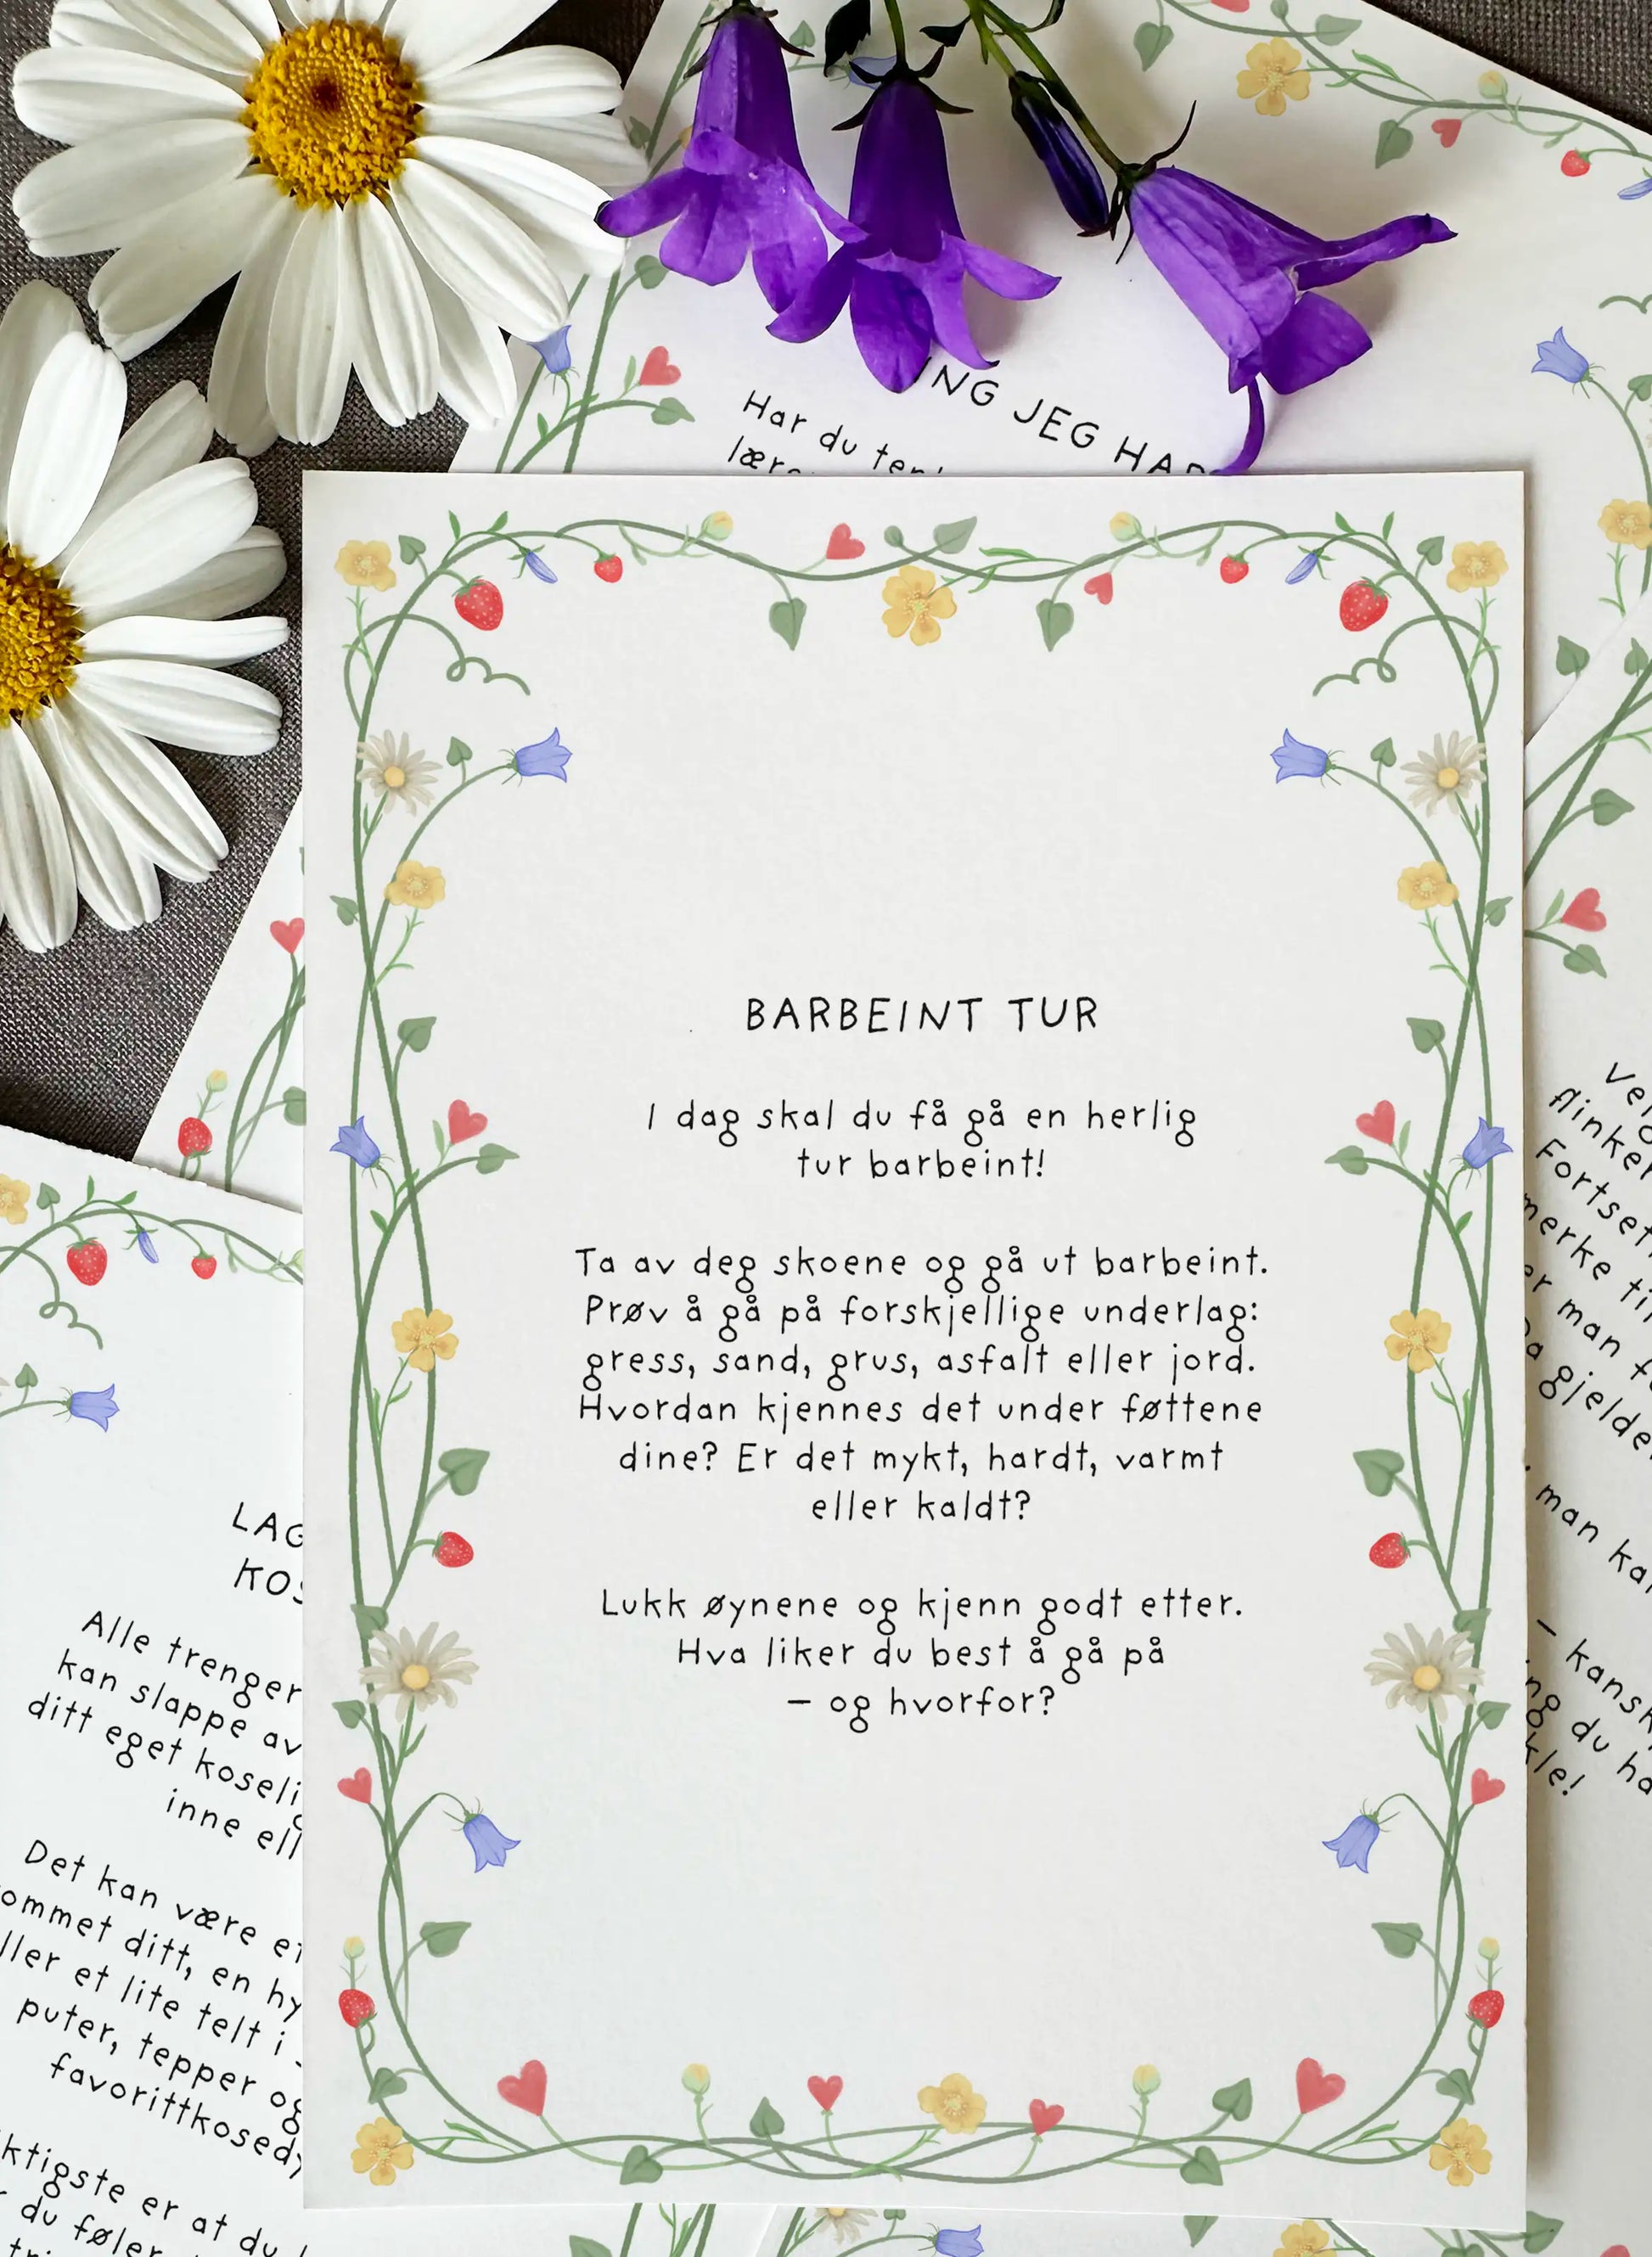 NG JEG HAR
Har du
BARBEINT TUR
I dag skal du få gå en herlig
tur barbeint!
Ta av deg skoene og gå ut barbeint.
Prøv å gå på forskjellige underlag:
gress, sand, grus, asfalt eller jord.
Hvordan kjennes det under føttene
dine? Er det mykt, hardt, varmt
eller kaldt?
Lukk øynene og kjenn godt etter.
Hva liker du best å gå på
– og hvorfor?
LAG
KOS
Alle trenger
kan slappe av
ditt eget koseli
inne ell
Det kan være et
ommet ditt, en hy
ller et lite telt i
puter, tepper og
favorittkosedy
ktigste er at du
du føler
Vel
flinke
Fortset
merke ti
er man f
gjelde
man ka
– kansk
ng du ha
kle!